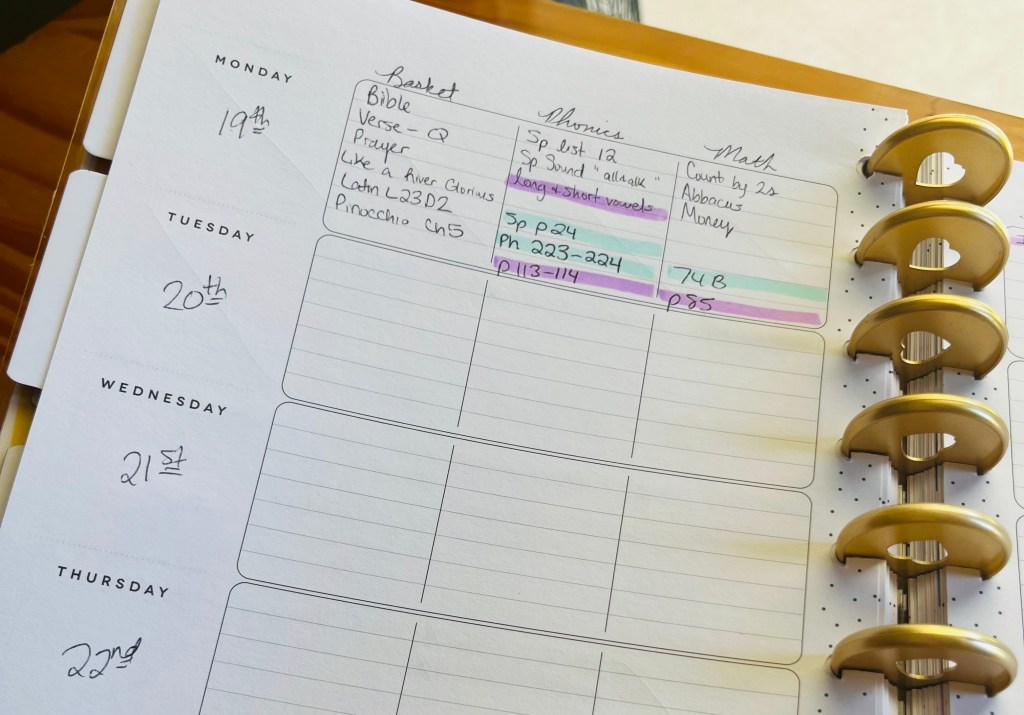 MONDAY
19th
Basket
Bible
Verse - Q
Prayer
Like a River Glorius
Latin L23D2
Pinocchio Ch5
Phonics
Sp list 12
Sp Sound "all+alk"
long + short vowels
Sp p24
Ph 223-224
p113-114
Math
Count by 2s
Abbacus
Money
74 B
p85
TUESDAY
20th
WEDNESDAY
21st
THURSDAY
22nd